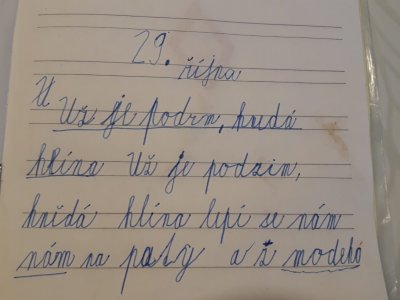 29.
října
U Už je podzm, hnědá
hlína Už je podzim,
hnědá hlína lepí se nám
nám na paty a ž modehó